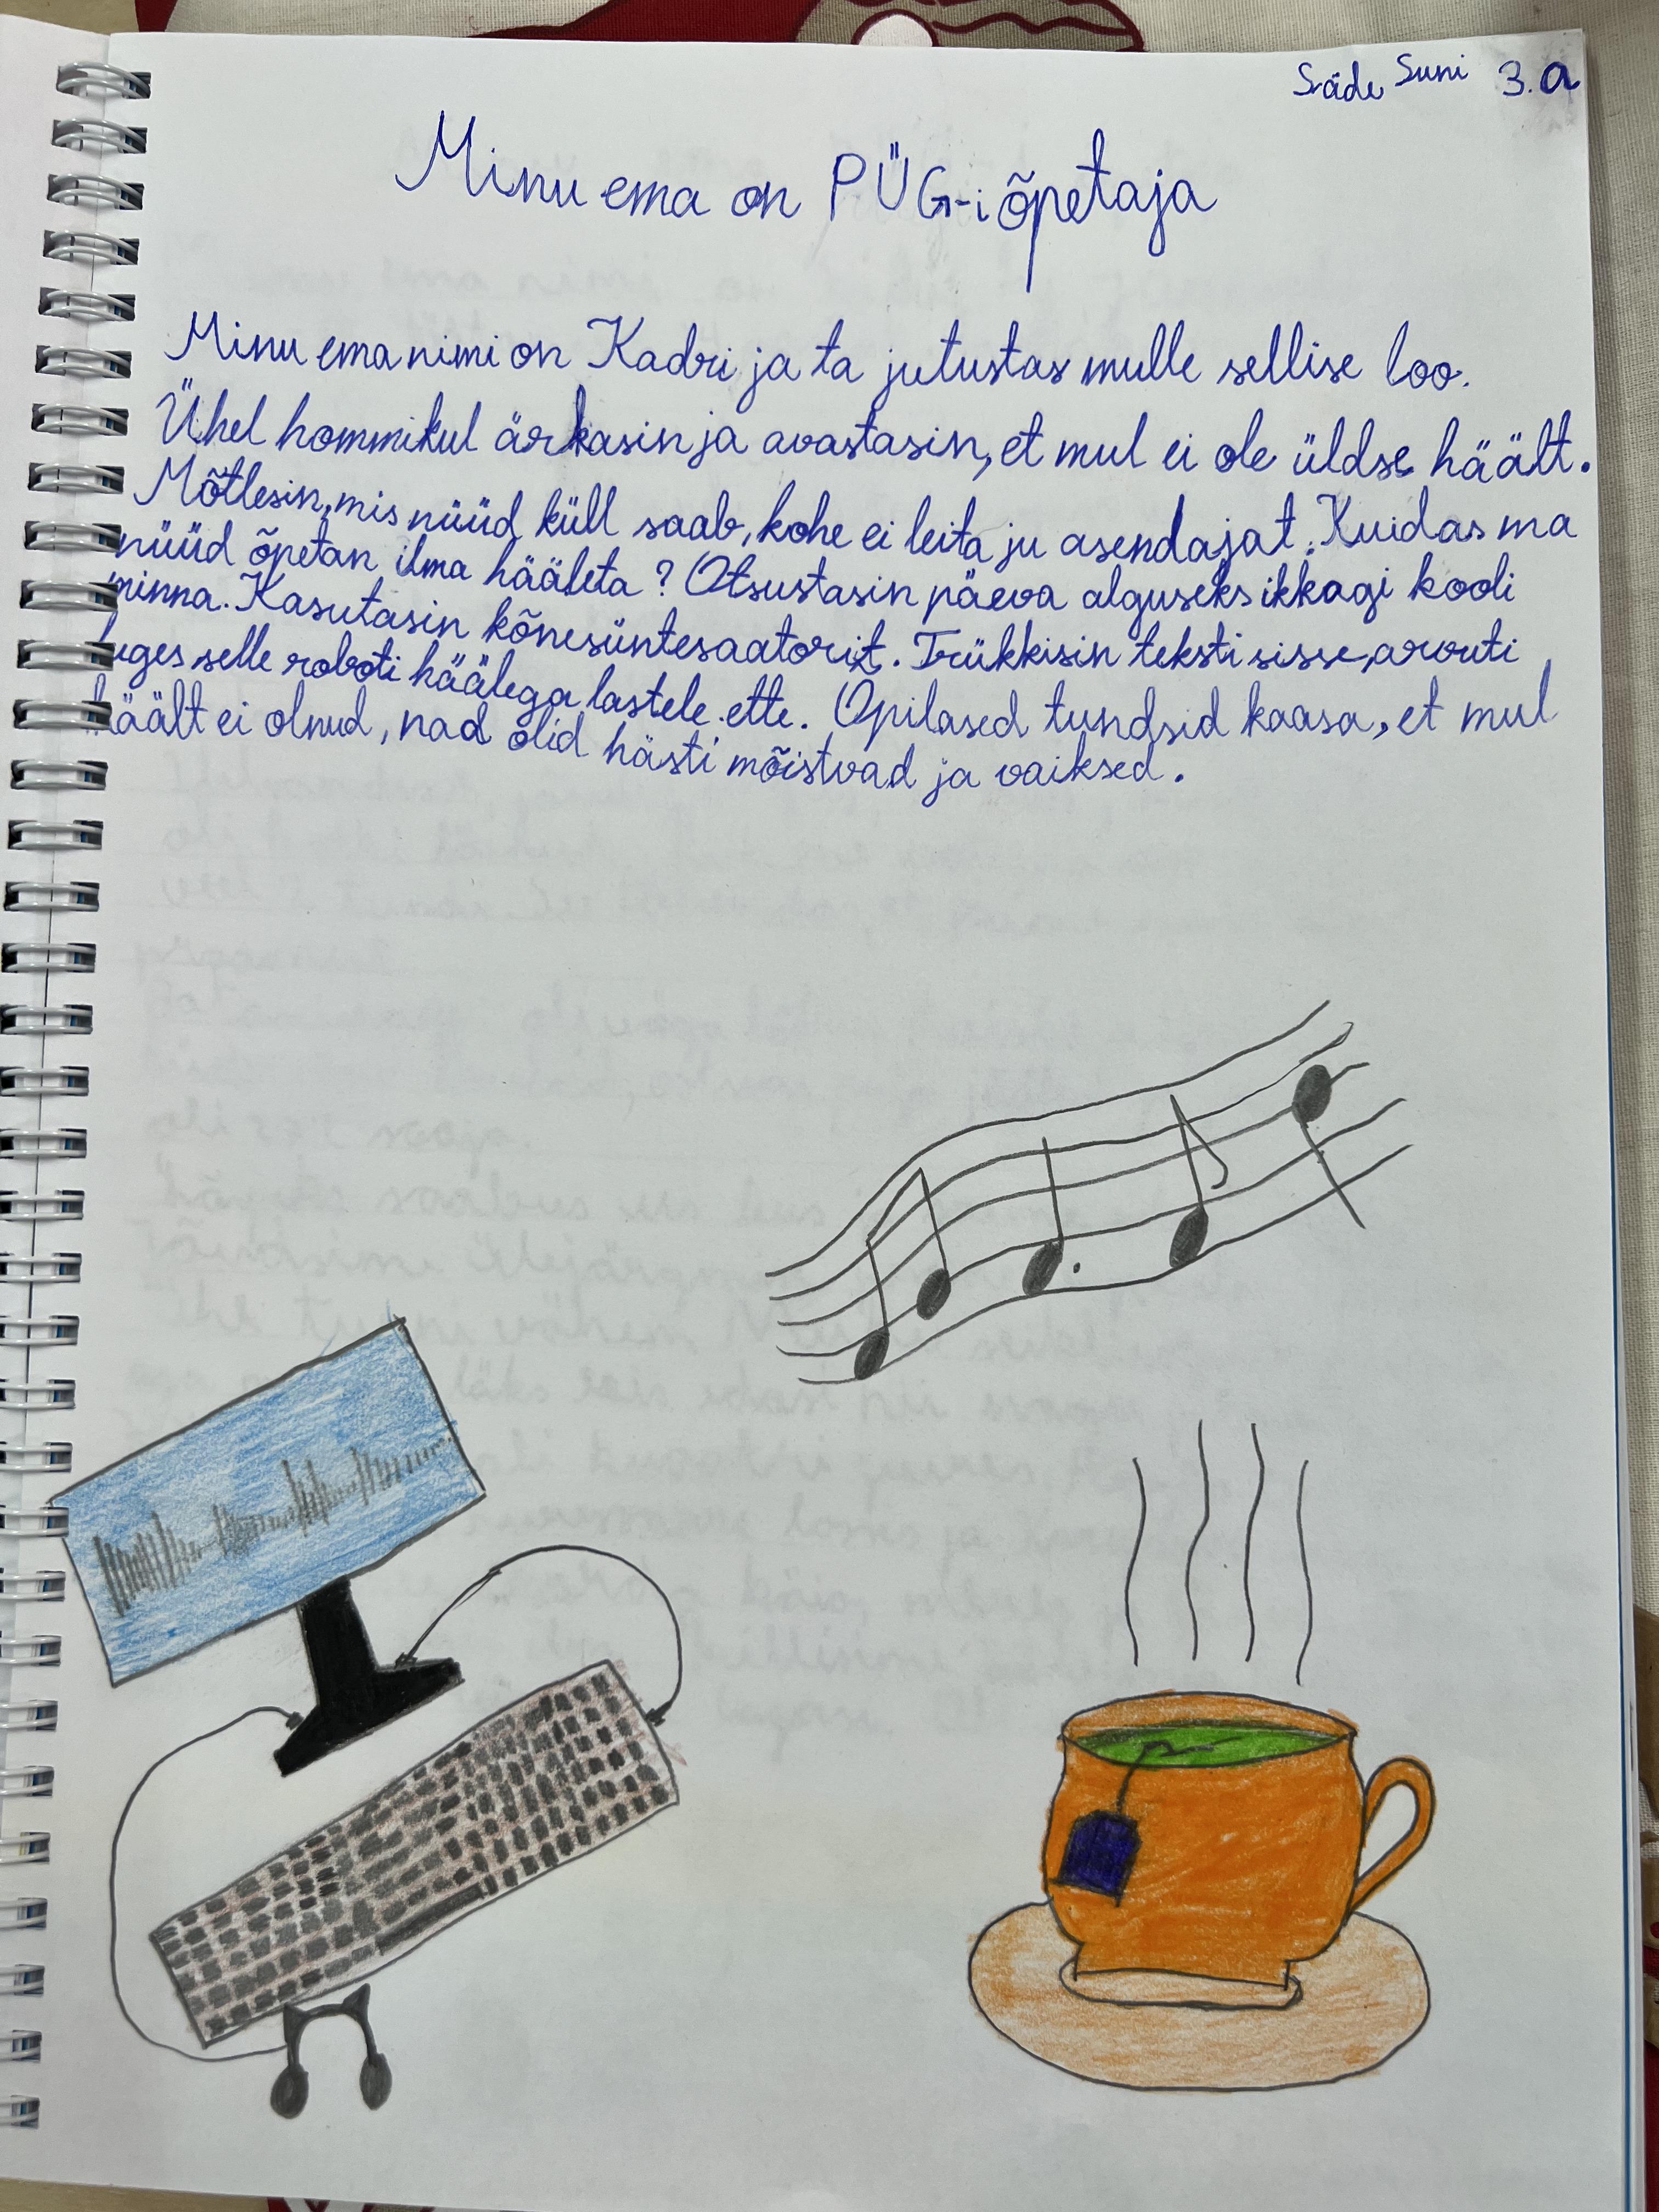 Säde Suni 3.a
Minu ema on PÜG-i õpetaja
Minu ema nimi on Kadri ja ta jutustas mulle sellise loo.
Ühel hommikul ärkasin ja avastasin, et mul ei ole üldse häält.
Mõtlesin, mis nüüd küll saab, kohe ei leita ju asendajat. Kuidas ma
nüüd õpetan ilma hääleta? Otsustasin päeva alguseks ikkagi kooli
minna. Kasutasin kõnesüntesaatorit. Trükkisin teksti sisse, arvuti
luges selle roboti häälega lastele ette. Õpilased tundsid kaasa, et mul
häält ei olnud, nad olid hästi mõistvad ja vaiksed.